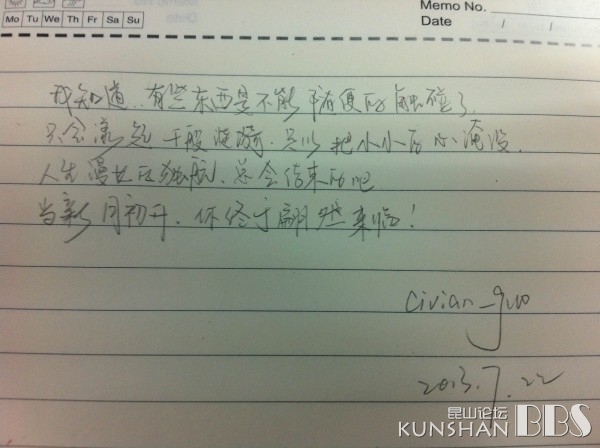 Memo No.
Mo Tu We Th Fr Sa Su
Date / /
我知道..有些东西是不能随便的触碰了.
只会漾起千般涟漪.足以把小小的心淹没.
人生漫长的独航.总会结束的吧
当新月初升.你终于翩然来临!
civian_guo
2013.7.22
昆山论坛
KUNSHAN BBS